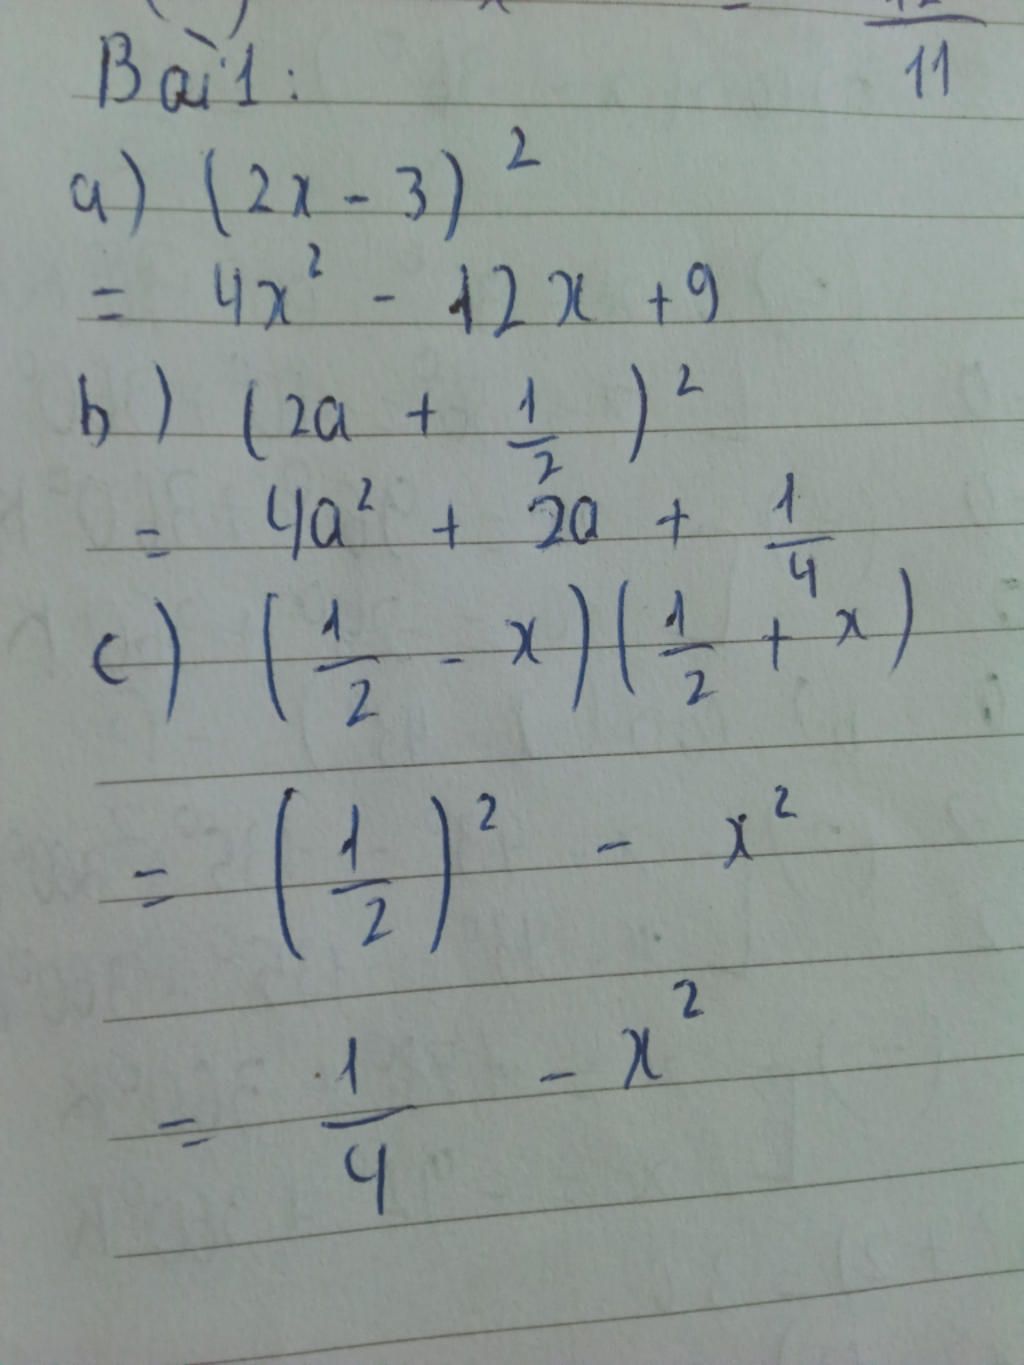 11
Bài 1:
a) (2x - 3)²
= 4x² - 12x + 9
b) (2a + 1/2)²
= 4a² + 2a + 1/4
c) (1/2 - x)(1/2 + x)
= (1/2)² - x²
= 1/4 - x²